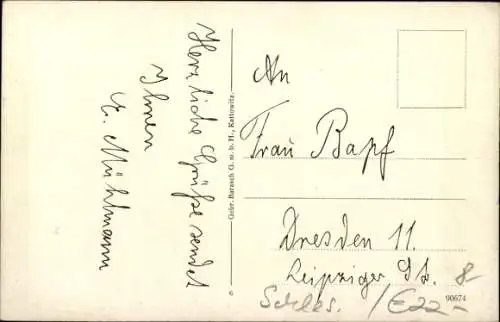 Herzliche Grüße sendet
Ihnen
E. Mühlmann
Gebr. Barasch G. m. b. H., Kattowitz.
An
Frau Bapf
Dresden 11.
Leipziger
8-
90674
Schles. /E22-